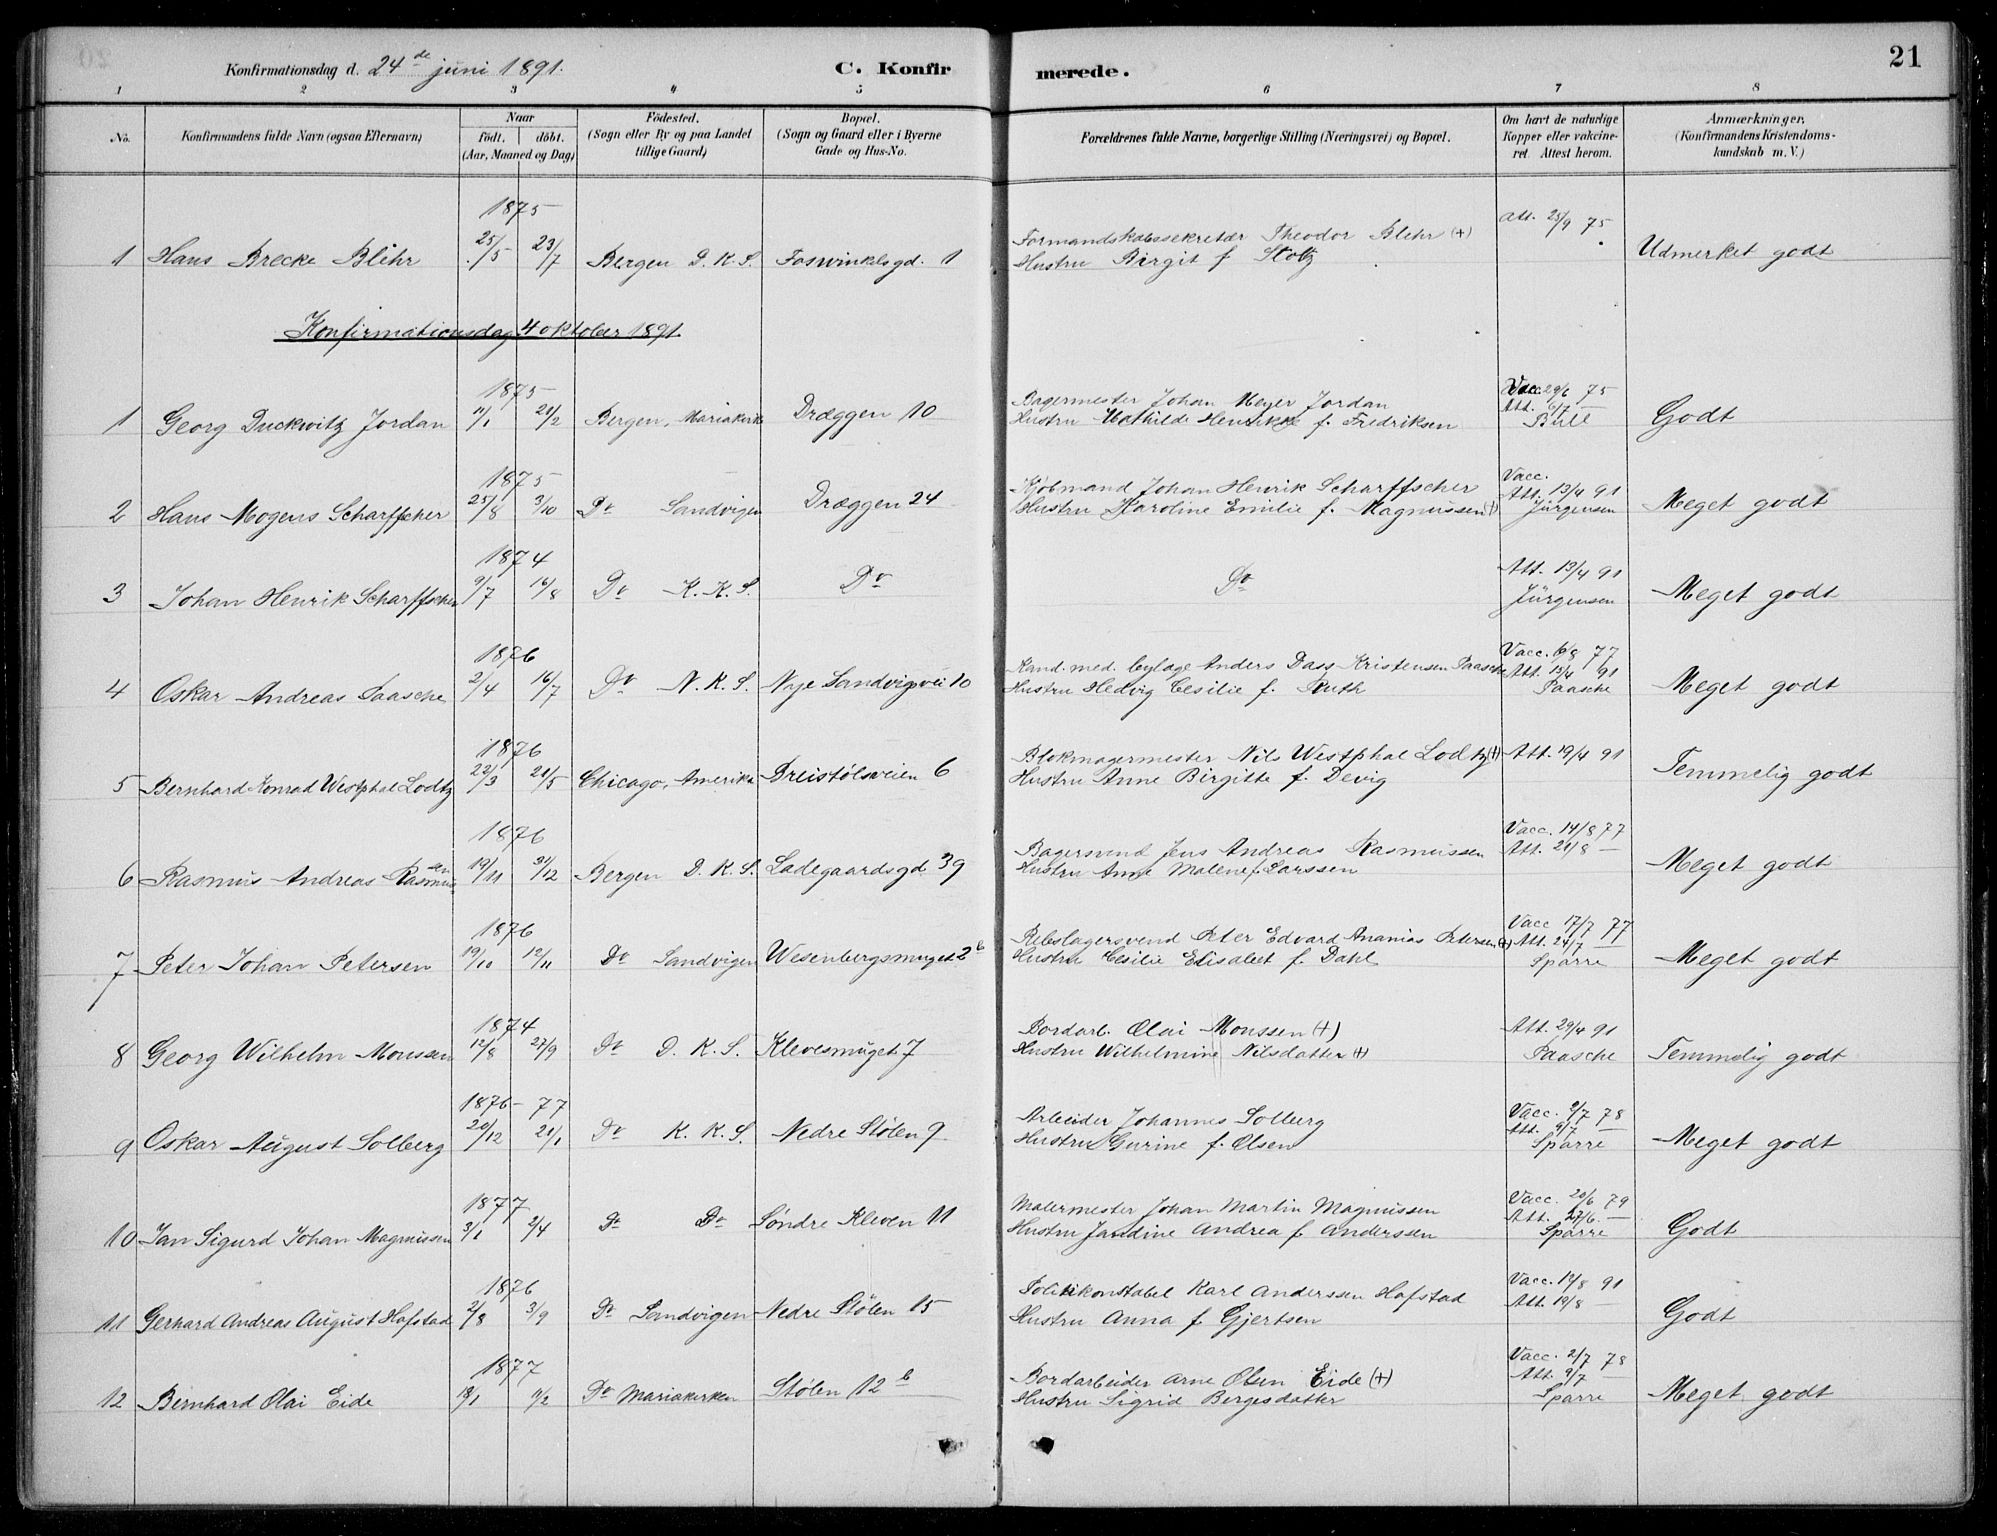 Konfirmationsdag d. 24de juni 1891.
C. Konfirmerede.
21
1 2 3 4 5 6 7 8
No.
Konfirmandens fulde Navn (ogsaa Efternavn)
Naar
født. døbt.
(Aar, Maaned og Dag)
Fødested.
(Sogn eller By og paa Landet
tillige Gaard)
Bopæl.
(Sogn og Gaard eller i Byerne
Gade og Hus-No.
Forældrenes fulde Navne, borgerlige Stilling (Næringsvei) og Bopæl.
Om havt de naturlige
Kopper eller vakcine-
ret Attest herom.
Anmærkninger.
(Konfirmandens Kristendoms-
kundskab m. V.)
1875
1 Hans Brecke Blehr 25/5 23/7 Bergen D. K. S. Foswinkelsgd. 1
Formandskabssekretær Theodor Blehr (+)
Hustru Birgit f Stoltz
Att. 25/9 75
Udmerket godt
Konfirmationsdag 4 oktober 1891.
1875
1 Georg Duckwitz Jordan 11/1 21/2 Bergen, Mariakirke Dræggen 10
Bagermester Johan Meyer Jordan
Hustru Mathilde Henrikke f. Fredriksen
Vacc. 29/6 75
Att. 6/7 —
Bull
Godt
1875
2 Hans Mogens Scharffscher 25/8 3/10 Do Sandvigen Dræggen 24
Kjøbmand Johan Henrik Scharffscher
Hustru Karoline Emilie f. Magnussen (+)
Vacc.
Att. 13/4 91
Jürgensen
Meget godt
1874
3 Johan Henrik Scharffscher 9/7 16/8 Do K. K. S. Do
Do
Att. 13/4 91
Jürgensen
Meget godt
1876
4 Oskar Andreas Paasche 2/4 16/7 Do N. K. S. Nye Sandvigsvei 10
Kand. med. Cylage Anders Dass Kristensen Paasche
Hustru Hedvig Cesilie f. Ruth
Vacc. 6/8 77
Att. 13/4 91
Paasche
Meget godt
1876
5 Bernhard Konrad Westphal Lodtz 22/3 21/5 Chicago, Amerika Breistølsveien 6
Blokmagermester Nils Westphal Lodtz (+)
Hustru Anne Birgitte f. Devig
Att. 19/4 91
Temmelig godt
1876
6 Rasmus Andreas Rasmussen 19/11 31/12 Bergen D. K. S. Ladegaardsgd. 39
Bagersvend Jens Andreas Rasmussen
Hustru Anne Malene f. Larssen
Vacc. 14/8 77
Att. 21/8 —
Meget godt
1876
7 Peter Johan Petersen 19/10 12/11 Do Sandvigen Wesenbergsmuget 2b
Rebslagersvend Peter Edvard Ananias Petersen (+)
Hustru Cesilie Elisabet f. Dahl
Vacc 17/7 77
Att. 24/7 —
Sparre
Meget godt
1874
8 Georg Wilhelm Monssen 12/8 27/9 Do D. K. S. Klevesmuget 7
Bordarb. Olai Monssen (+)
Hustru Wilhelmine Nilsdatter (+)
Att. 29/4 91
Paasche
Temmelig godt
1876 - 77
9 Oskar August Solberg 20/12 21/1 Do K. K. S. Nedre Stølen 9
Arbeider Johannes Solberg
Hustru Gurine f. Olsen
Vacc. 2/7 78
Att. 9/7 —
Sparre
Meget godt
1877
10 Jan Sigurd Johan Magnussen 3/1 2/4 Do Do Søndre Kleven 11
Malermester Johan Martin Magnussen
Hustru Jandine Andrea f. Anderssen
Vacc. 20/6 79
Att. 27/6. —
Sparre
Godt
1876
11 Gerhard Andreas August Hofstad 2/8 3/9 Do Sandvigen Nedre Stølen 15
Politikonstabel Karl Anderssen Hofstad
Hustru Anna f Gjertsen
Vacc. 12/8 91
Att. 19/8 —
Godt
1877
12 Bernhard Olai Eide 18/1 11/2 Do Mariakirken Stølen 12b
Bordarbeider Arne Olsen Eide (+)
Hustru Sigrid Bergesdatter
Vacc. 2/7 78
Att. 9/7 —
Sparre
Meget godt